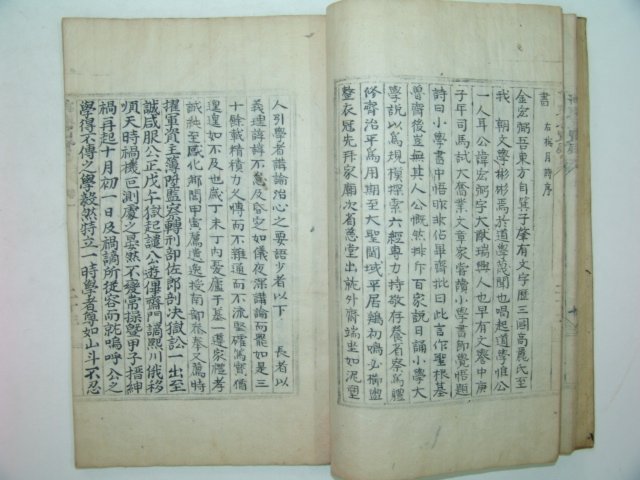 書 右梅月時序
金宏弼吾東方自箕子肇有文字歷三國高麗氏至
我 朝文學彬彬焉於道學蔑聞也唱起道學惟公
一人耳公諱宏弼字大猷瑞興人也早有文譽中庚
子年司馬試大奮業文章家嘗讀小學書即覺悟題
詩曰小學書中悟昨非佔畢齋批曰此言作聖根基
魯齋後豈無其人公慨然排斥百家說日誦小學大
學說以爲規模探索六經專力持敬存養省察爲體
修齊治平爲用期至大聖閫域平居鷄初鳴必櫛盥
整衣冠先拜家廟次省慈堂出就外齋端坐如泥塑
人引學者講論治心之要語少者以下 長者以
義理諄諄不怠及昏定如儀夜深講論而罷如是三
十餘載精積力久博而不雜通而不流堅確篤實猶
遑遑如不及也歲丁未丁內憂廬于墓一遵家禮孝
誠純至感化鄉閭甲寅薦遺逸授南部參奉又薦特
擢軍資主簿陞監察轉刑部佐郎剖決獄訟一出至
誠咸服公正戊午獄起讉公遊畢齋門謫熙川俄移
順天時禍機叵測處之晏然不變常操曁甲子搢紳
禍再起十月初一日及禍謫所從容而就嗚呼公之
學得不傳之學毅然特立一時學者尊如山斗不忍